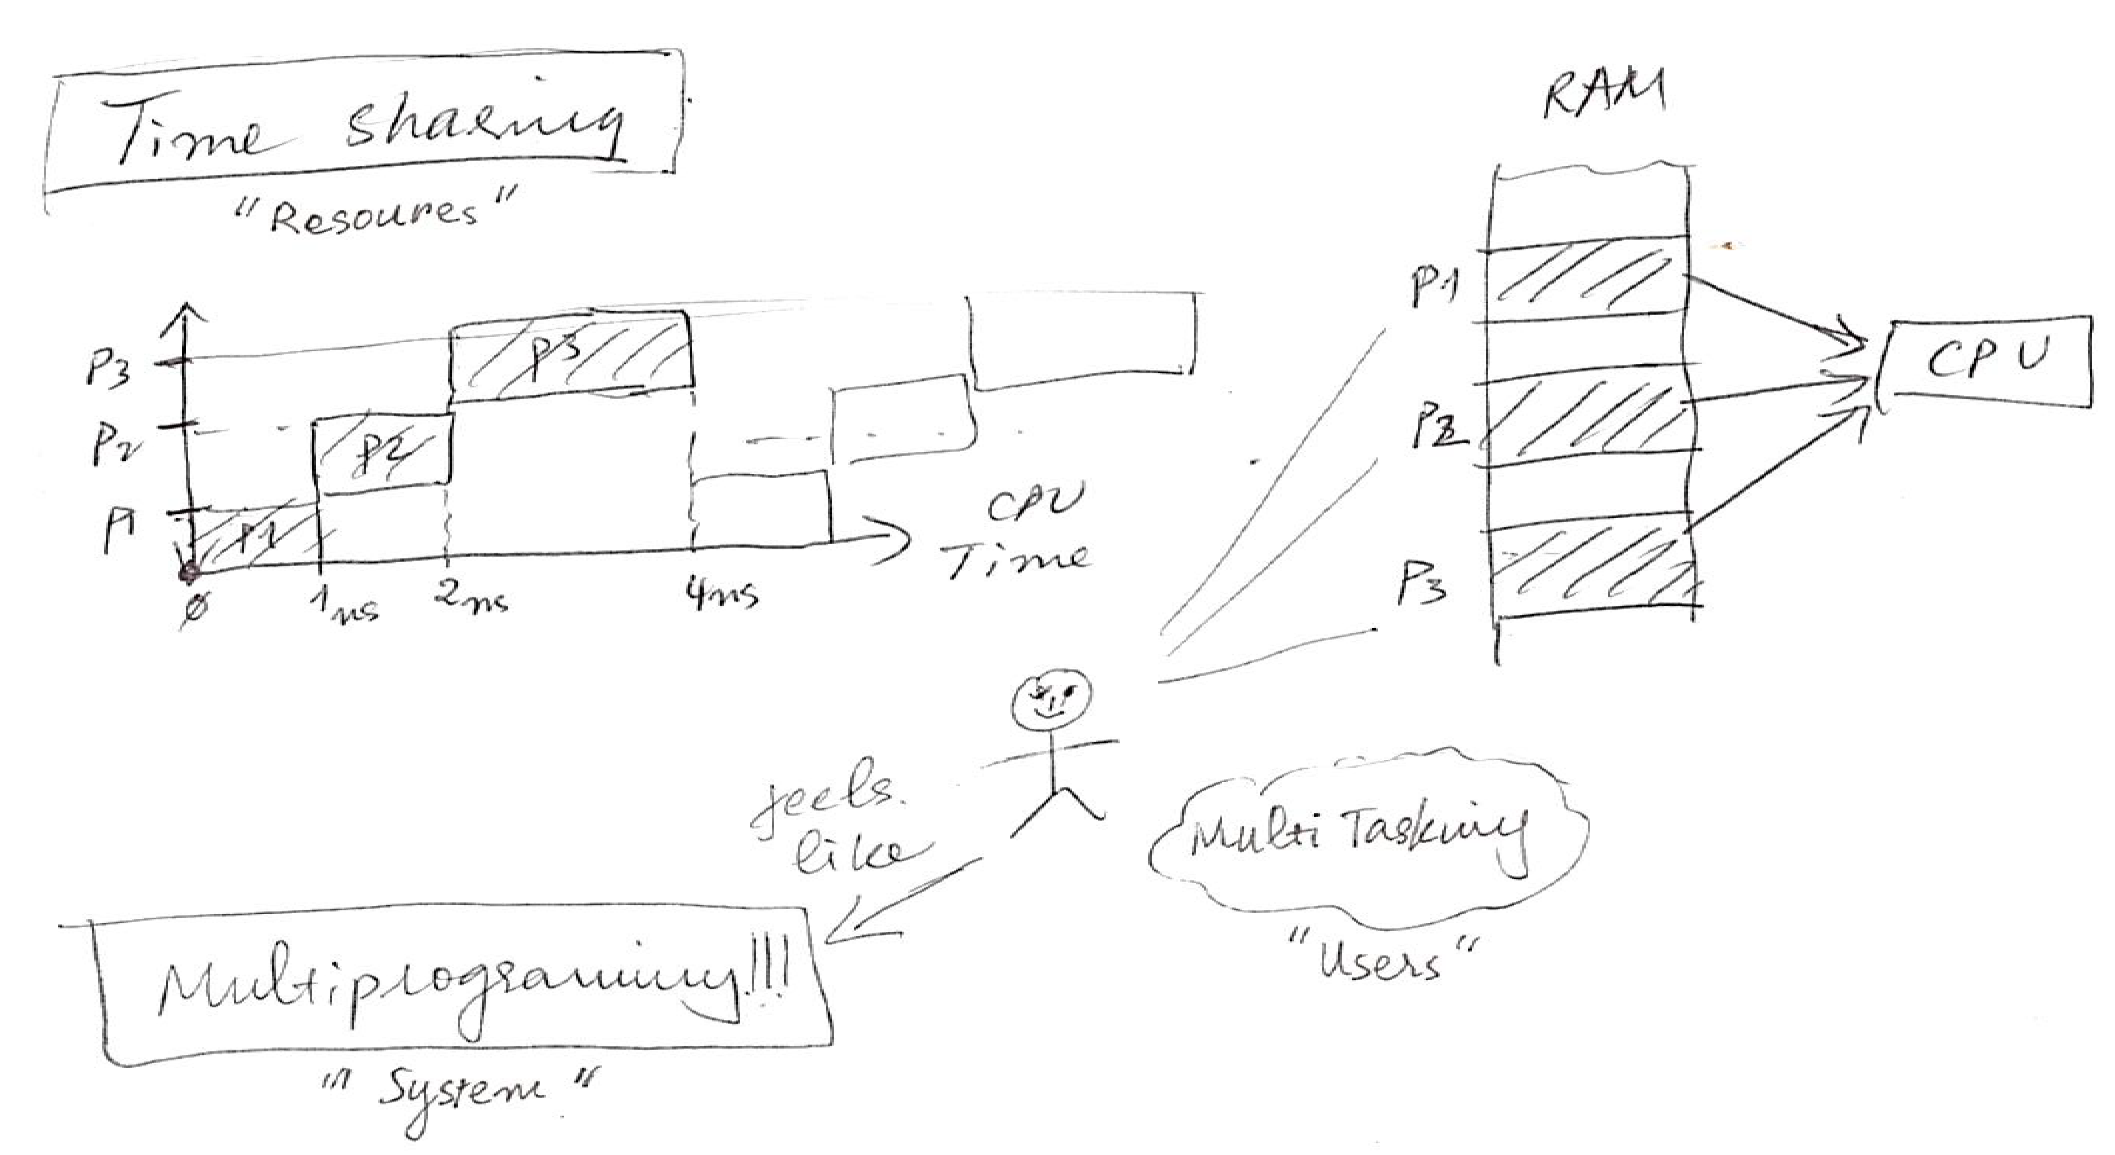 Time sharing
"Resoures"
P3
P2
P1
P1
P2
P3
0
1ns
2ns
4ns
CPU
Time
RAM
P1
P2
P3
CPU
feels
like
Multi Tasking
"Users"
Multiprograming!!!
"System"